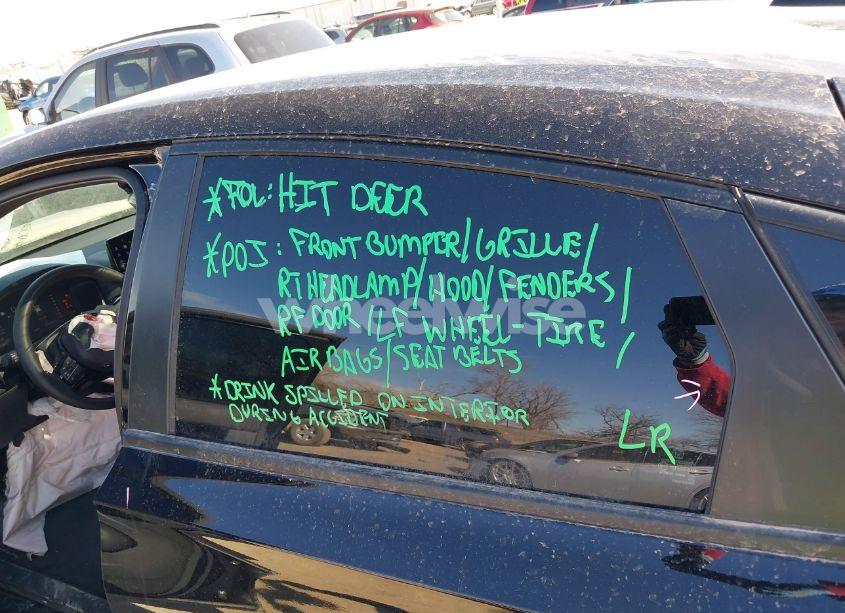 *POL: HIT DEER
*POI: FRONT BUMPER/GRILLE/
RT HEADLAMP/HOOD/FENDERS/
RF DOOR/LF WHEEL-TIRE/
AIRBAGS/SEAT BELTS
*DRINK SPILLED ON INTERIOR
DURING ACCIDENT
LR
wheelwise